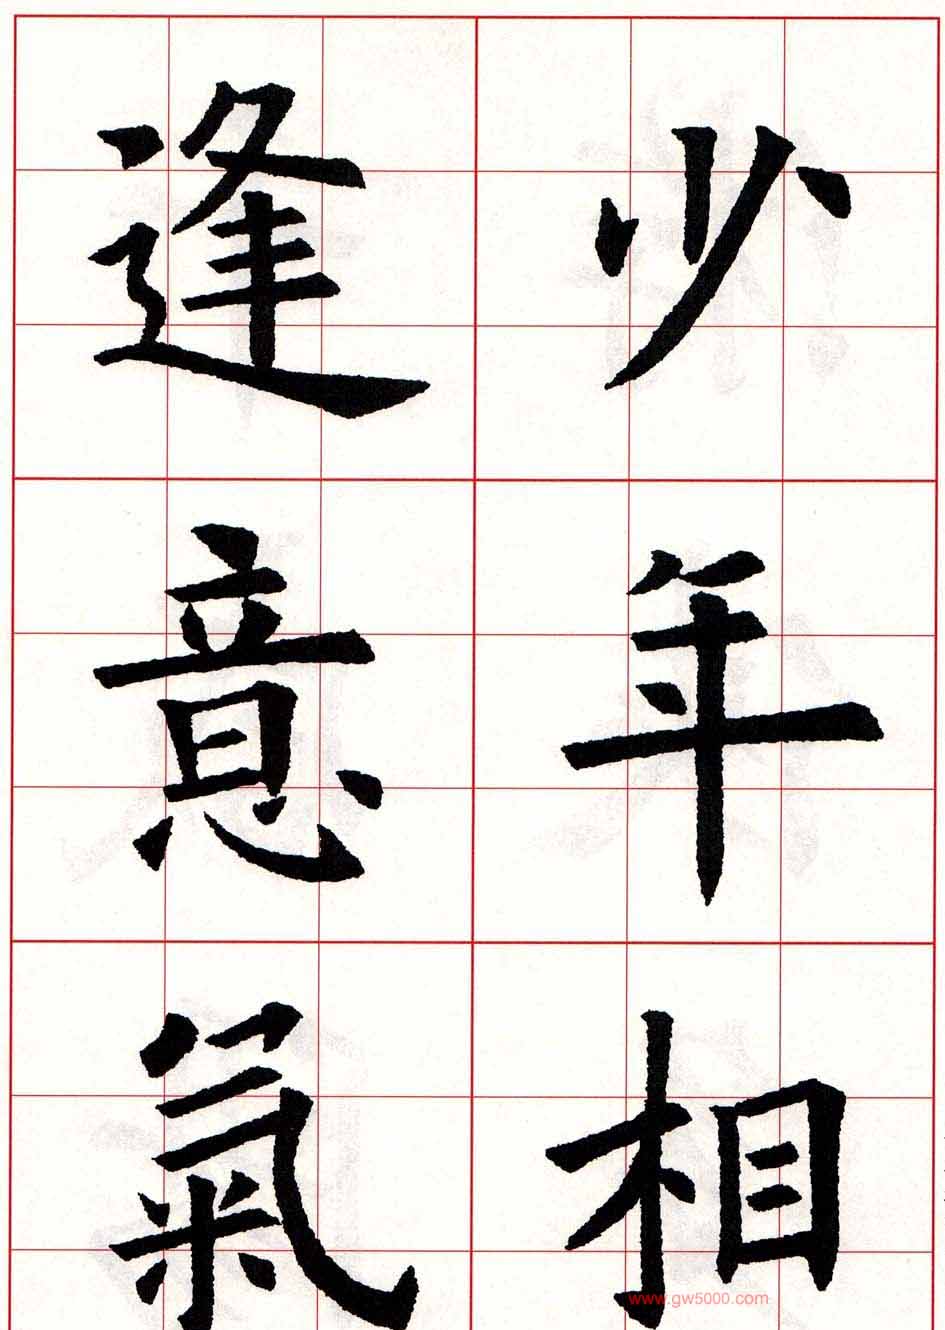 少年相
逢意氣
www.gw5000.com